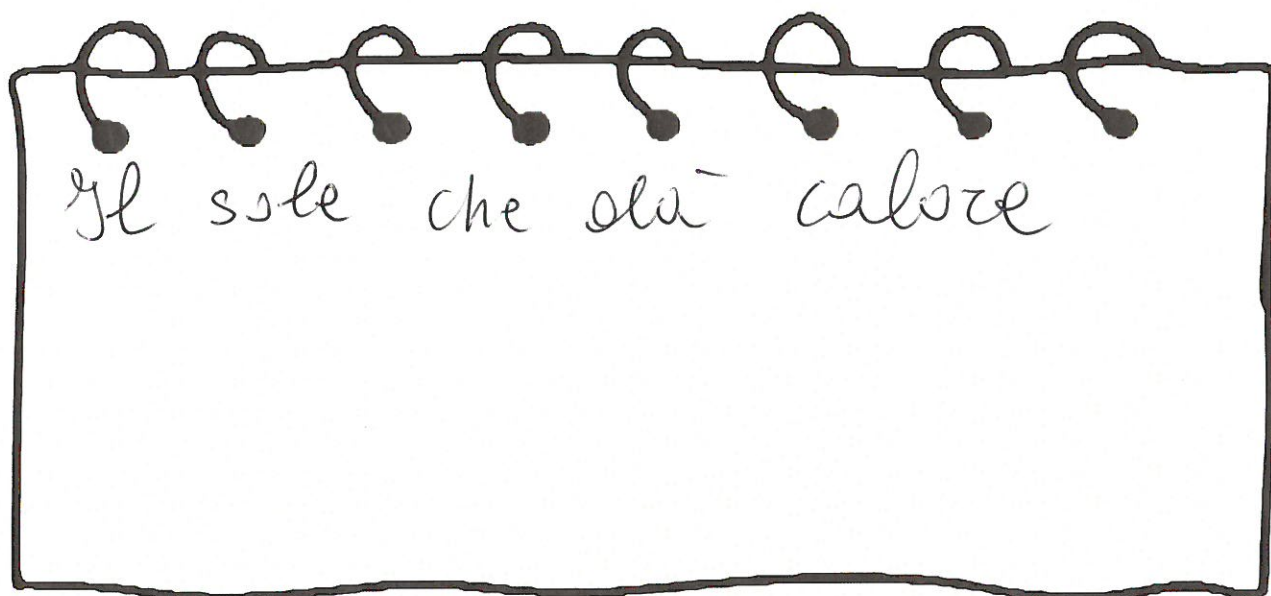 Il sole che dà calore